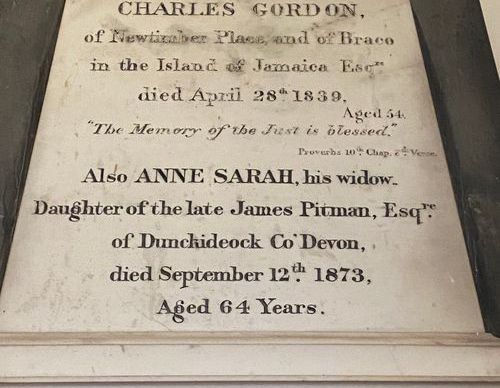 CHARLES GORDON,
of Newtimber Place, and of Braco
in the Island of Jamaica Esqre
died April 28th 1839,
Aged 54.
"The Memory of the Just is blessed."
Proverbs 10th Chap. 7th Verse.
Also ANNE SARAH, his widow.
Daughter of the late James Pitman, Esqre.
of Dunchideock Co. Devon,
died September 12th. 1873,
Aged 64 Years.